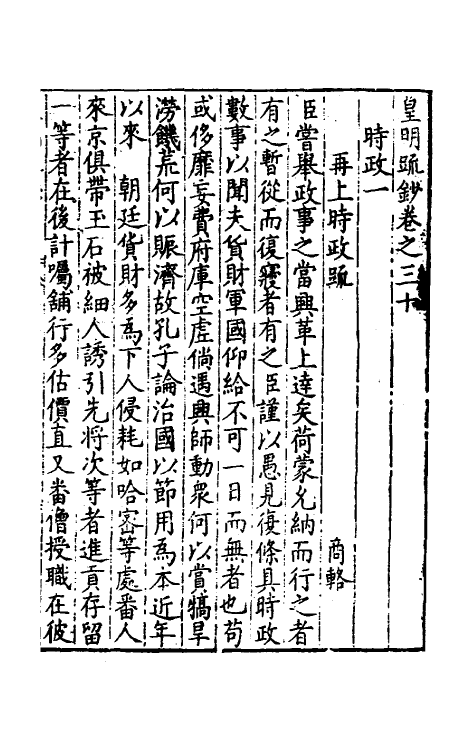 皇明疏鈔卷之三十
時政一
再上時政疏 商輅
臣嘗舉政事之當興革上達矣荷蒙允納而行之者
有之暫從而復寢者有之臣謹以愚見復條具時政
數事以聞夫貨財軍國仰給不可一日而無者也苟
或侈靡妄費府庫空虛倘遇興師動眾何以賞犒旱
澇饑荒何以賑濟故孔子論治國以節用為本近年
以來 朝廷貨財多為下人侵耗如哈密等處番人
來京俱帶玉石被細人誘引先將次等者進貢存留
一等者在後計囑舖行多估價直又番僧授職在彼